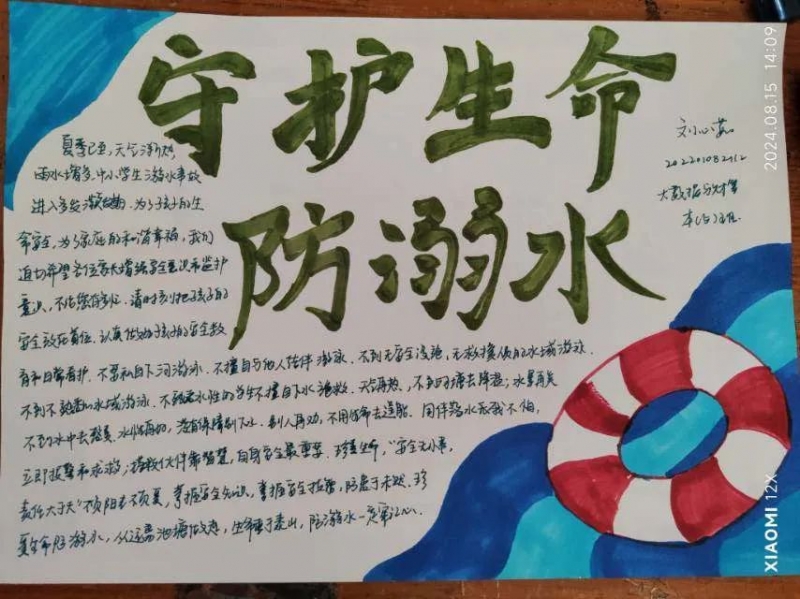 守护生命
防溺水
刘心茹
202201082112
大数据与财
夏季已至，天气渐热，
雨水增多，中小学生溺水事故
进入多发 为了孩子的生
命安全，为了家庭的和谐幸福，我们
迫切希望各位家长增强安全意识和监护
意识，不论您多忙，请时刻把孩子的
安全放在首位，认真做好孩子的安全教
育和日常看护。不要私自下河游泳、不擅自与他人结伴游泳、不到无安全设施，无救援人员的水域游泳、
不到不熟悉的水域游泳、不熟悉水性的学生不擅自下水施救、天气再热，不到河塘去降温；水景再美
不到水中去 水性再好，没有保障别下水。别人再劝，不用生命去逞能。同伴落水
立即报警和求救；援救伙伴靠智慧，自身安全最重要。珍惜生命，“安全无小事，
责任大于天”不负阳春不负夏，掌握安全知识，掌握安全技能，防患于未然。珍
爱生命防溺水，从远离池塘做起，生命重于泰山，防溺水一定牢记心。
2024.08.15 14:09
XIAOMI 12X